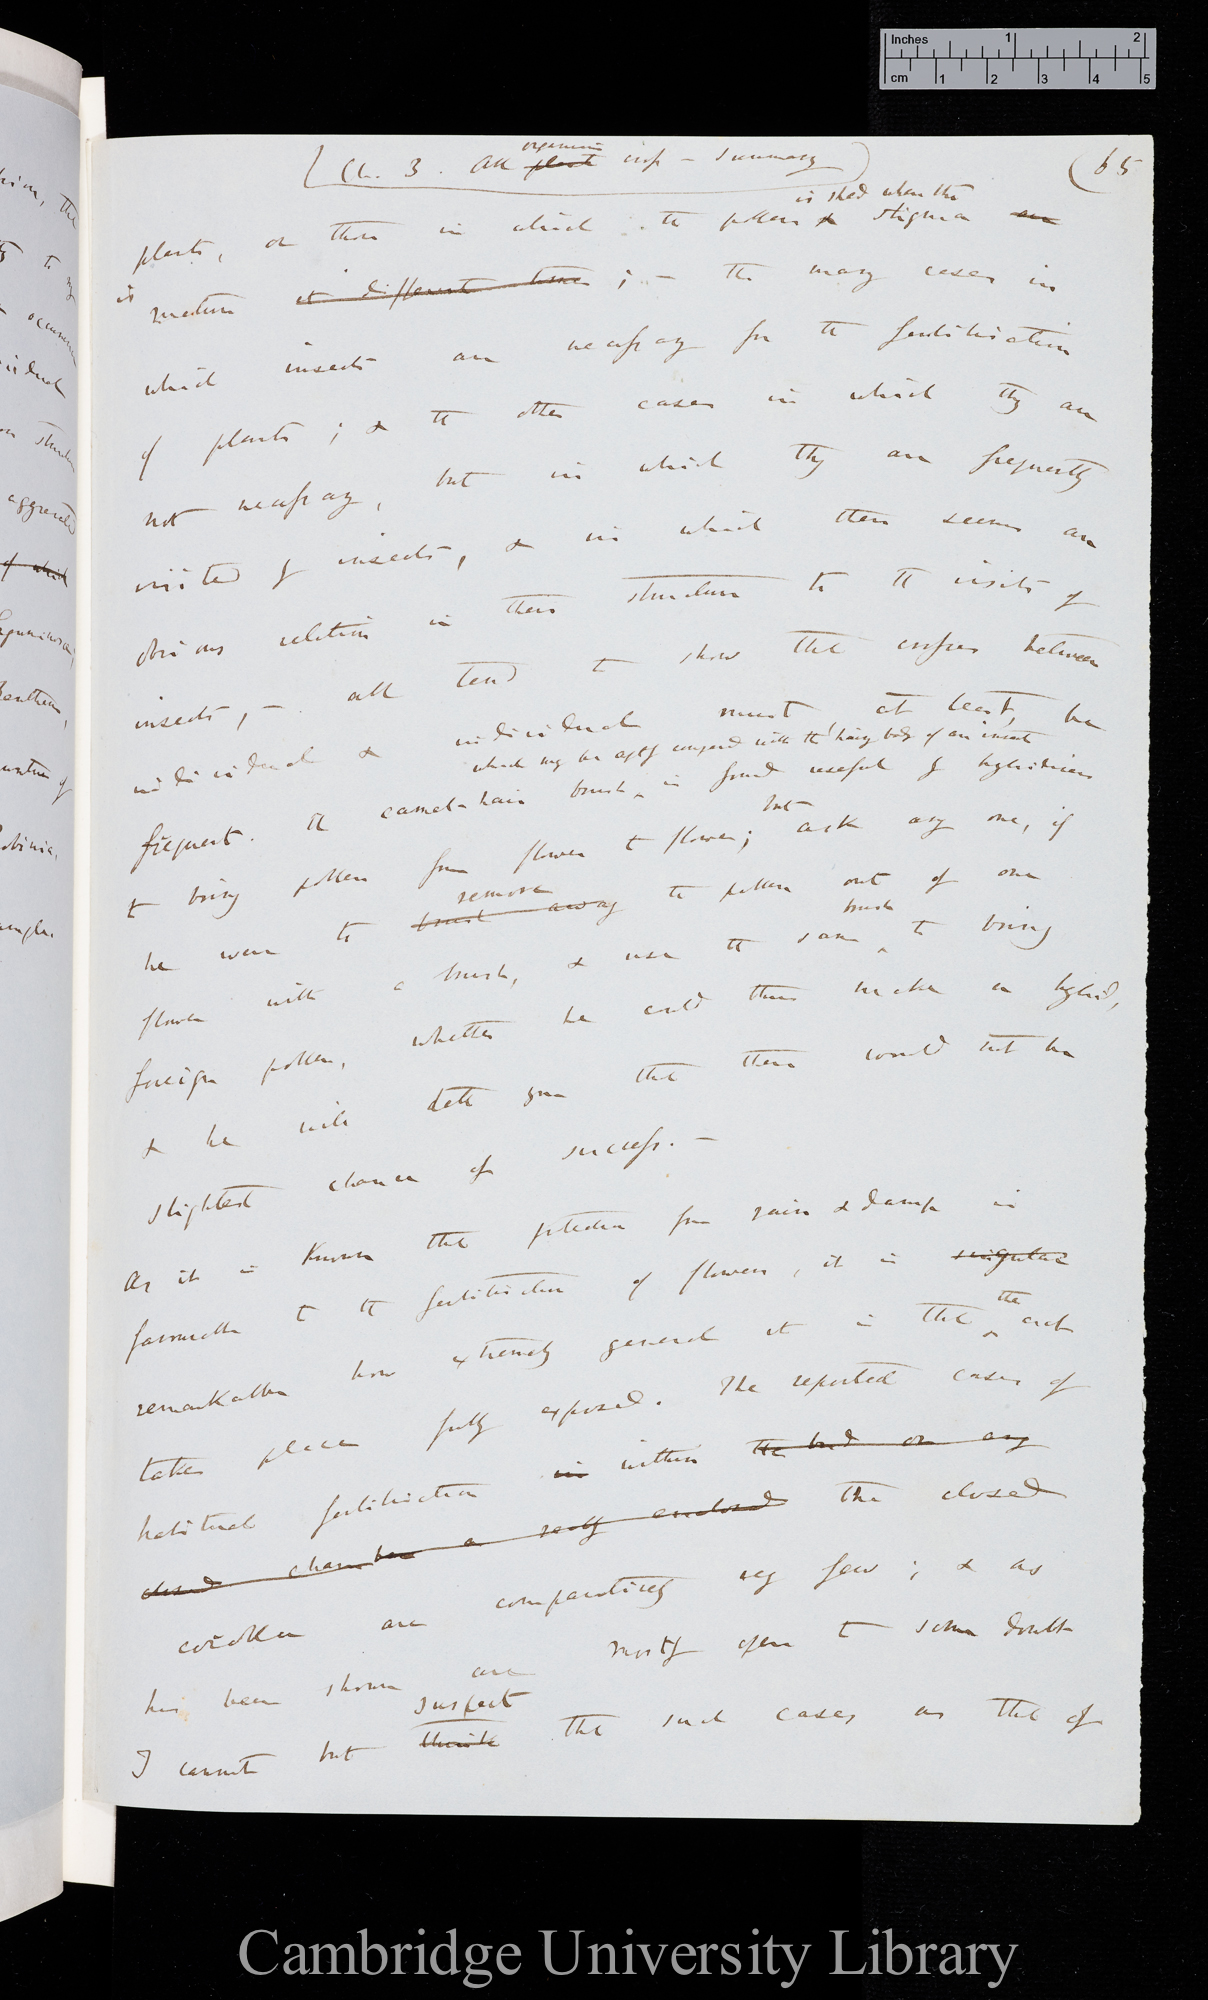 (Ch. 3. All ~~plants~~ organisms cross – Summary) (65
plants, or those in which the pollen ~~&~~ is shed when the stigma ~~are~~
is mature ~~at different times~~; – the many cases in
which insects are necessary for the fertilisation
of plants; & the other cases in which they are
not necessary, but in which they are frequently
visited by insects, & in which there seems an
obvious relation in their structure to the visits of
insects, – all tend to show that crosses between
individual & individual must at least, be
frequent. The camel-hair brush, which may be aptly compared with the hairy body of an insect is found useful by hybridisers
to bring pollen from flower to flower; but ask any one, if
he were to ~~brush away~~ remove the pollen out of one
flower with a brush, & use the same brush to bring
foreign pollen, whether he could thus make a hybrid,
& he will tell you that there would not be
slightest chance of success. –
As it is known that protection from rain & damp is
favourable to the fertilisation of flowers, it is ~~singular~~
remarkable how extremely general it is that the act
takes place fully exposed. The reported cases of
habitual fertilisation ~~in~~ within ~~the bud or any~~
~~closed chamber or really enclosed~~ the closed
corolla are comparatively very few; & as
has been shown are mostly open to some doubt
I cannot but ~~think~~ suspect that such cases as that of